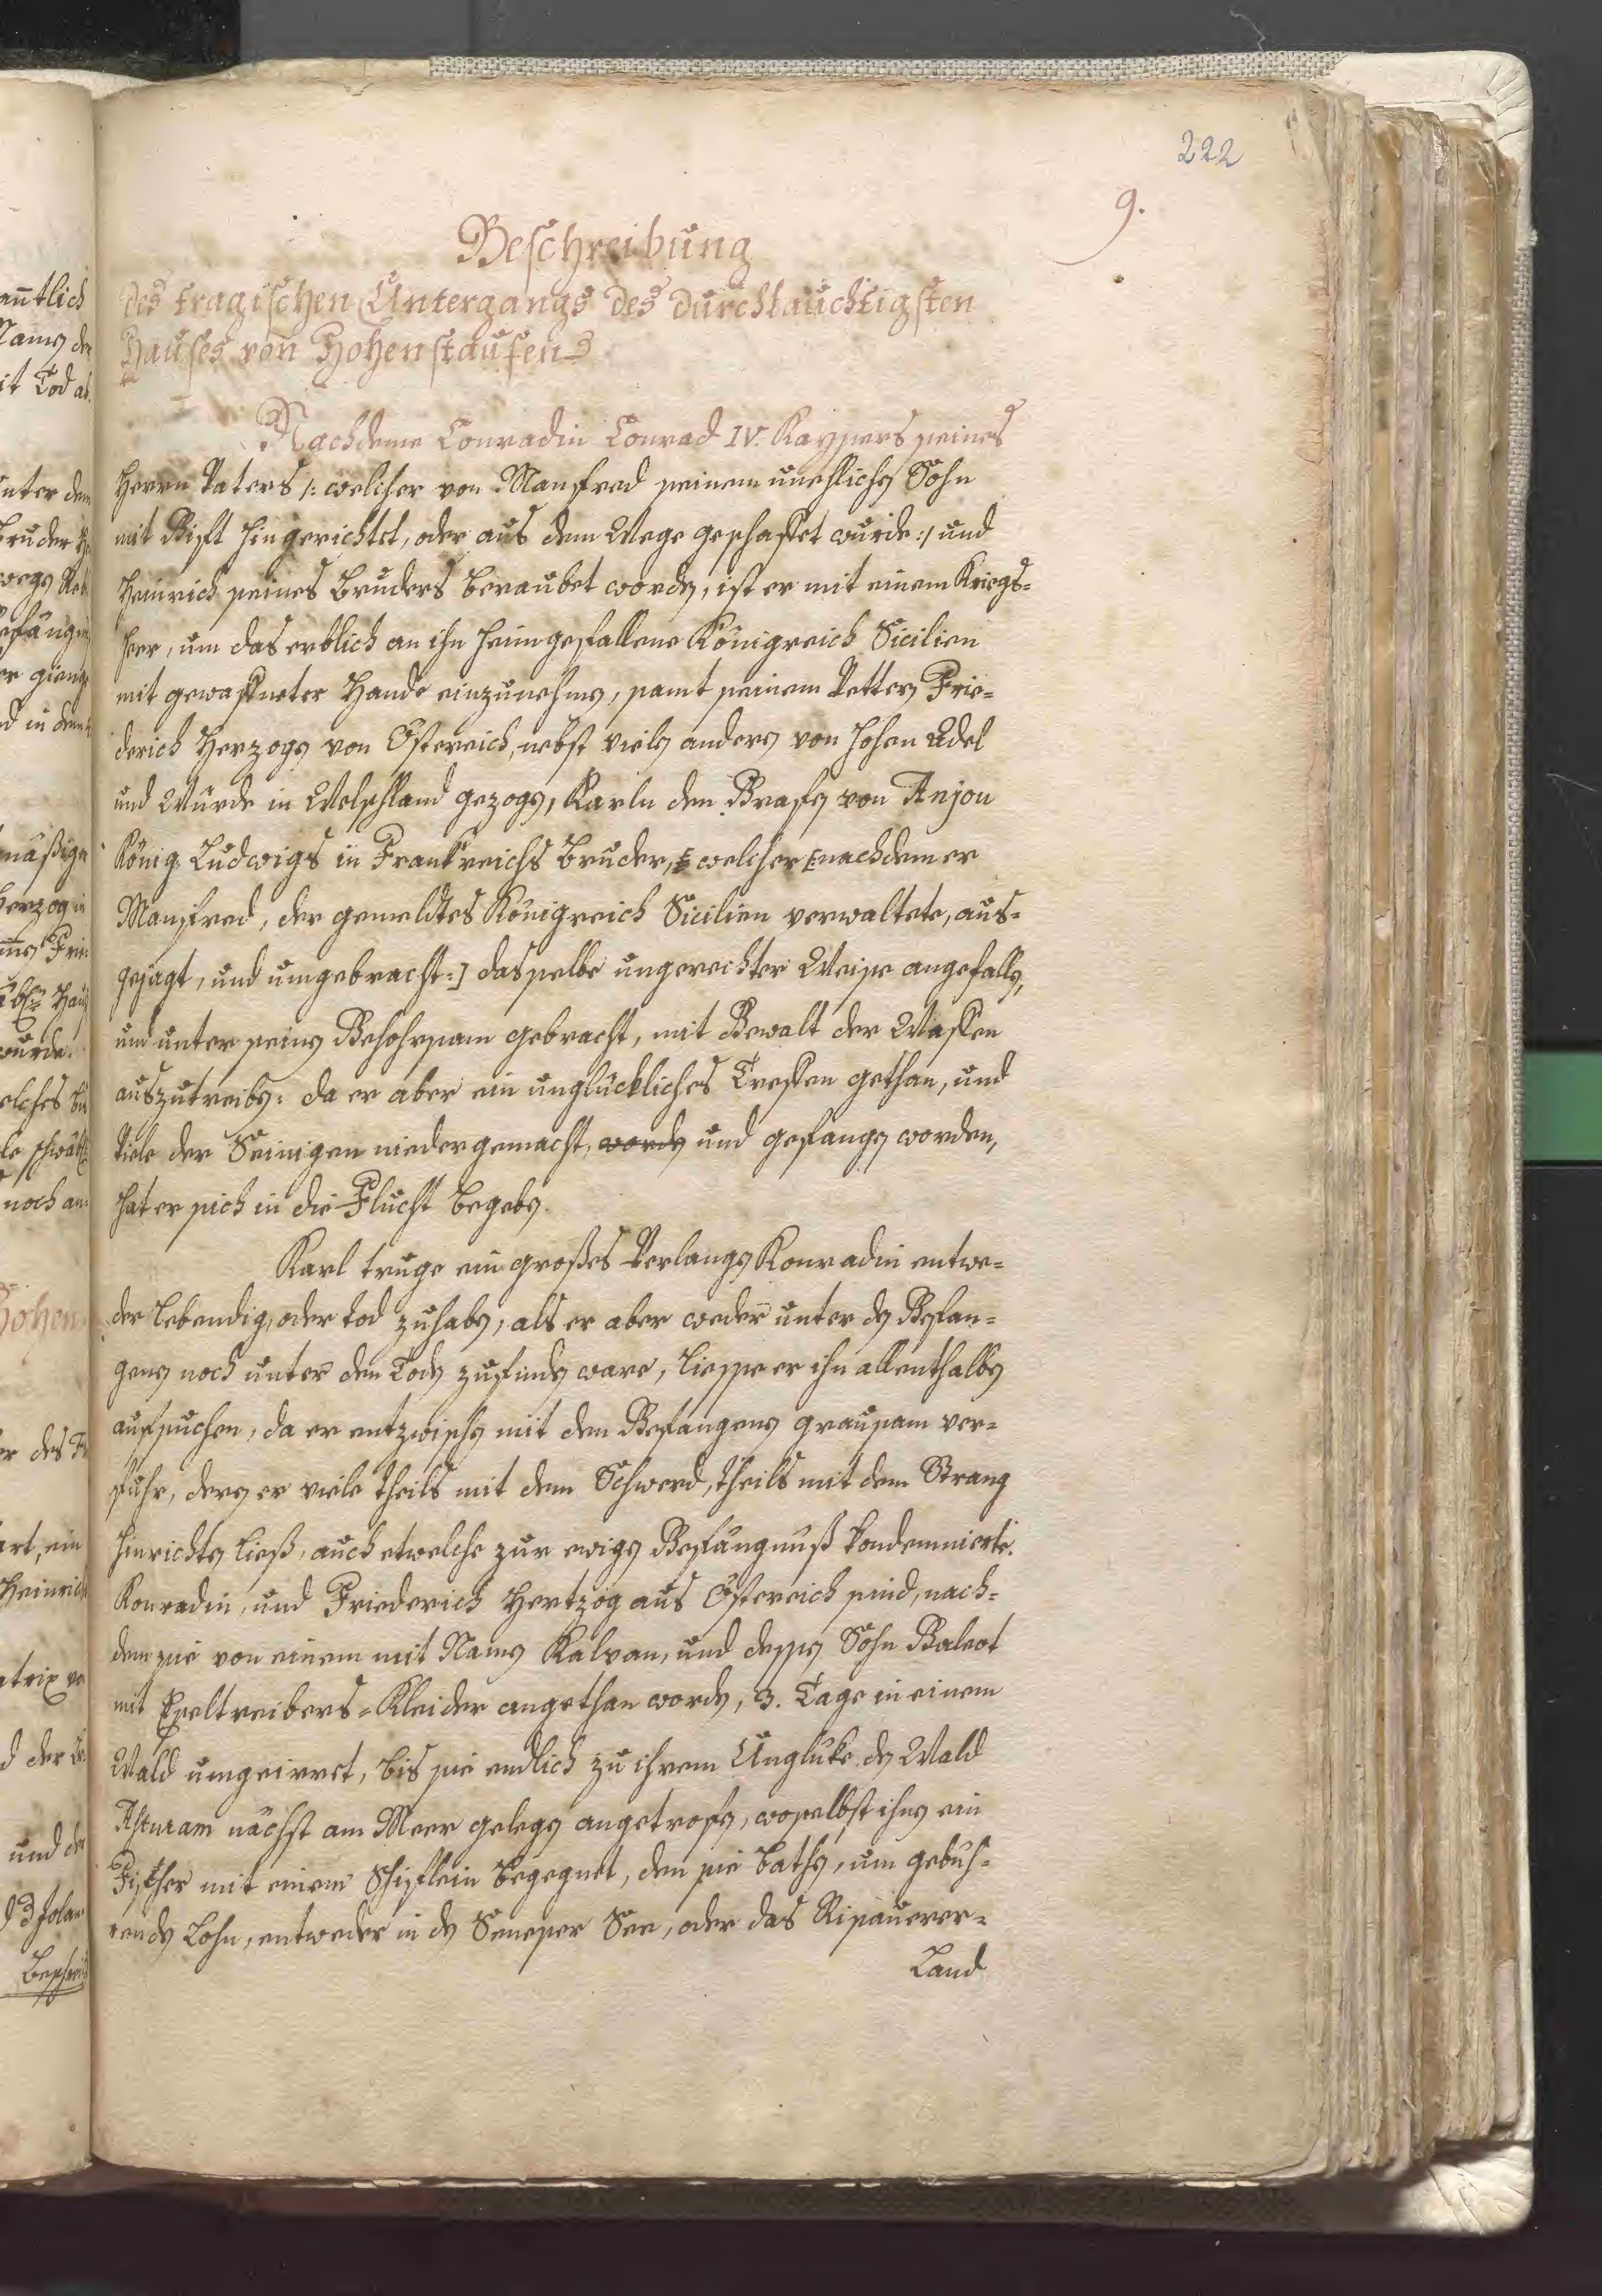 222
9.
Beschreibung
des tragischen Untergangs des durchlauchtigsten
Hauses von Hohenstaufen
Nachdeme Conradin Conrad IV. Kaysers seines
Herrn Vaters /: welcher von Manfred seinem unehlichen Sohn
mit Gift hingerichtet, oder aus dem Wege geschaffet wurde :/ und
Heinrich seines Bruders beraubet worden, ist er mit einem Kriegs-
heer, um das erblich an ihn heimgefallene Königreich Sicilien
mit gewaffneter Hande einzunehmen, samt seinem Vettern Frie-
derich Herzogen von Östereich, nebst vielen andern von hohen Adel
und Würde in Welschland gezogen, Karln den Grafen von Anjou
König Ludwigs in Frankreichs Bruder, welcher [: nachdem er
Manfred, der gemeldtes Königreich Sicilien verwaltete, aus-
gejagt, und umgebracht :] dasselbe ungerechter Weise angefallen,
und unter seinen Gehohrsam gebracht, mit Gewalt der Waffen
auszutreiben: da er aber ein unglückliches Treffen gethan, und
Viele der Seinigen niedergemacht, worden und gefangen worden,
hat er sich in die Flucht begeben.
Karl truge ein großes Verlangen Konradin entwe-
der lebendig, oder tod zuhaben, als er aber weder unter den Gefan-
genen noch unter den Toden zufinden ware, liesse er ihn allenthalben
aufsuchen, da er entzwischen mit den Gefangenen grausam ver-
fuhr, deren er viele theils mit dem Schwerd, theils mit dem Strang
hinrichten ließ, auch etwelche zur ewigen Gefängnuß kondemnierte.
Konradin, und Friederich Hertzog aus Östereich sind, nach-
dem sie von einem mit Namen Kalvan, und dessen Sohn Galeot
mit Eseltreibers-Kleider angethan worden, 3. Tage in einem
Wald umgeirret, bis sie endlich zu ihrem Unglüke den Wald
Asturam nächst am Meer gelegen angetrofen, woselbst ihnen ein
Fischer mit einem Schiflein begegnet, den sie bathen, um gebüh-
renden Lohn, entweder in den Seneser See, oder das Pisauerer-
Land